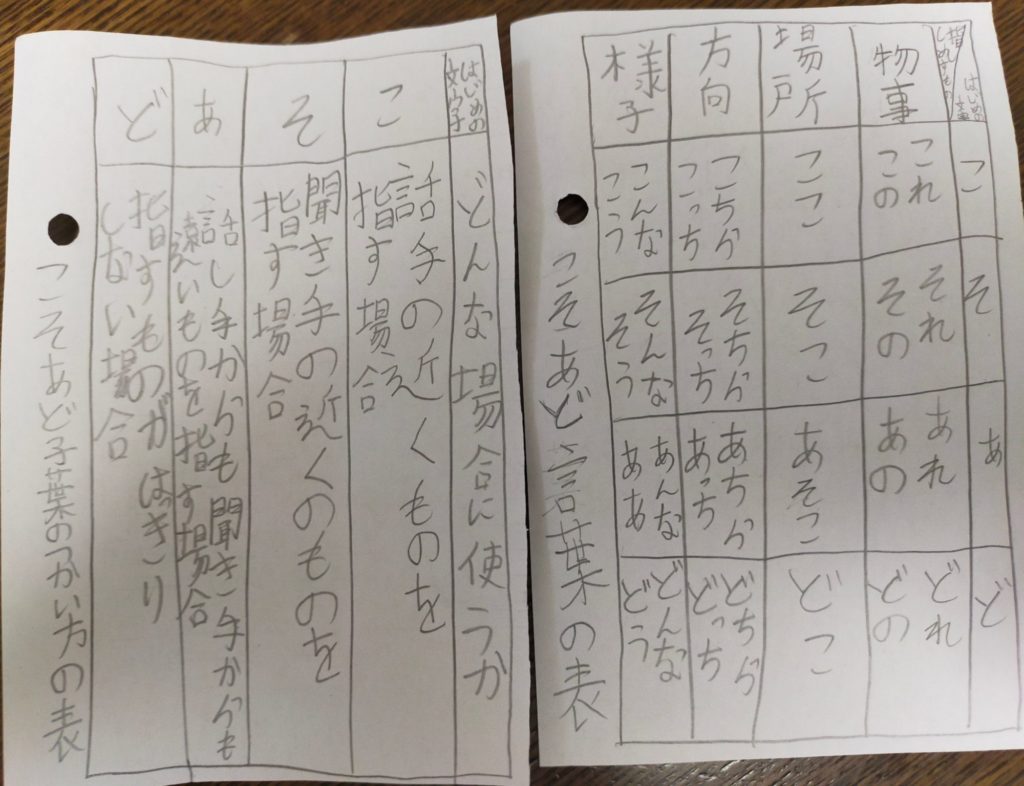 はじめの文字
指ししめすもの
こ
そ
あ
ど
物事
これ
この
それ
その
あれ
あの
どれ
どの
場所
ここ
そこ
あそこ
どこ
方向
こちら
こっち
そちら
そっち
あちら
あっち
どちら
どっち
様子
こんな
こう
そんな
そう
あんな
ああ
どんな
どう
こそあど言葉の表
はじめの
文字
どんな場合に使うか
こ
話手の近くものを
指す場合
そ
聞き手の近くのものを
指す場合
あ
話し手からも聞き手からも
遠いものを指す場合
ど
指すものがはっきり
しない場合
こそあど子葉のつかい方の表